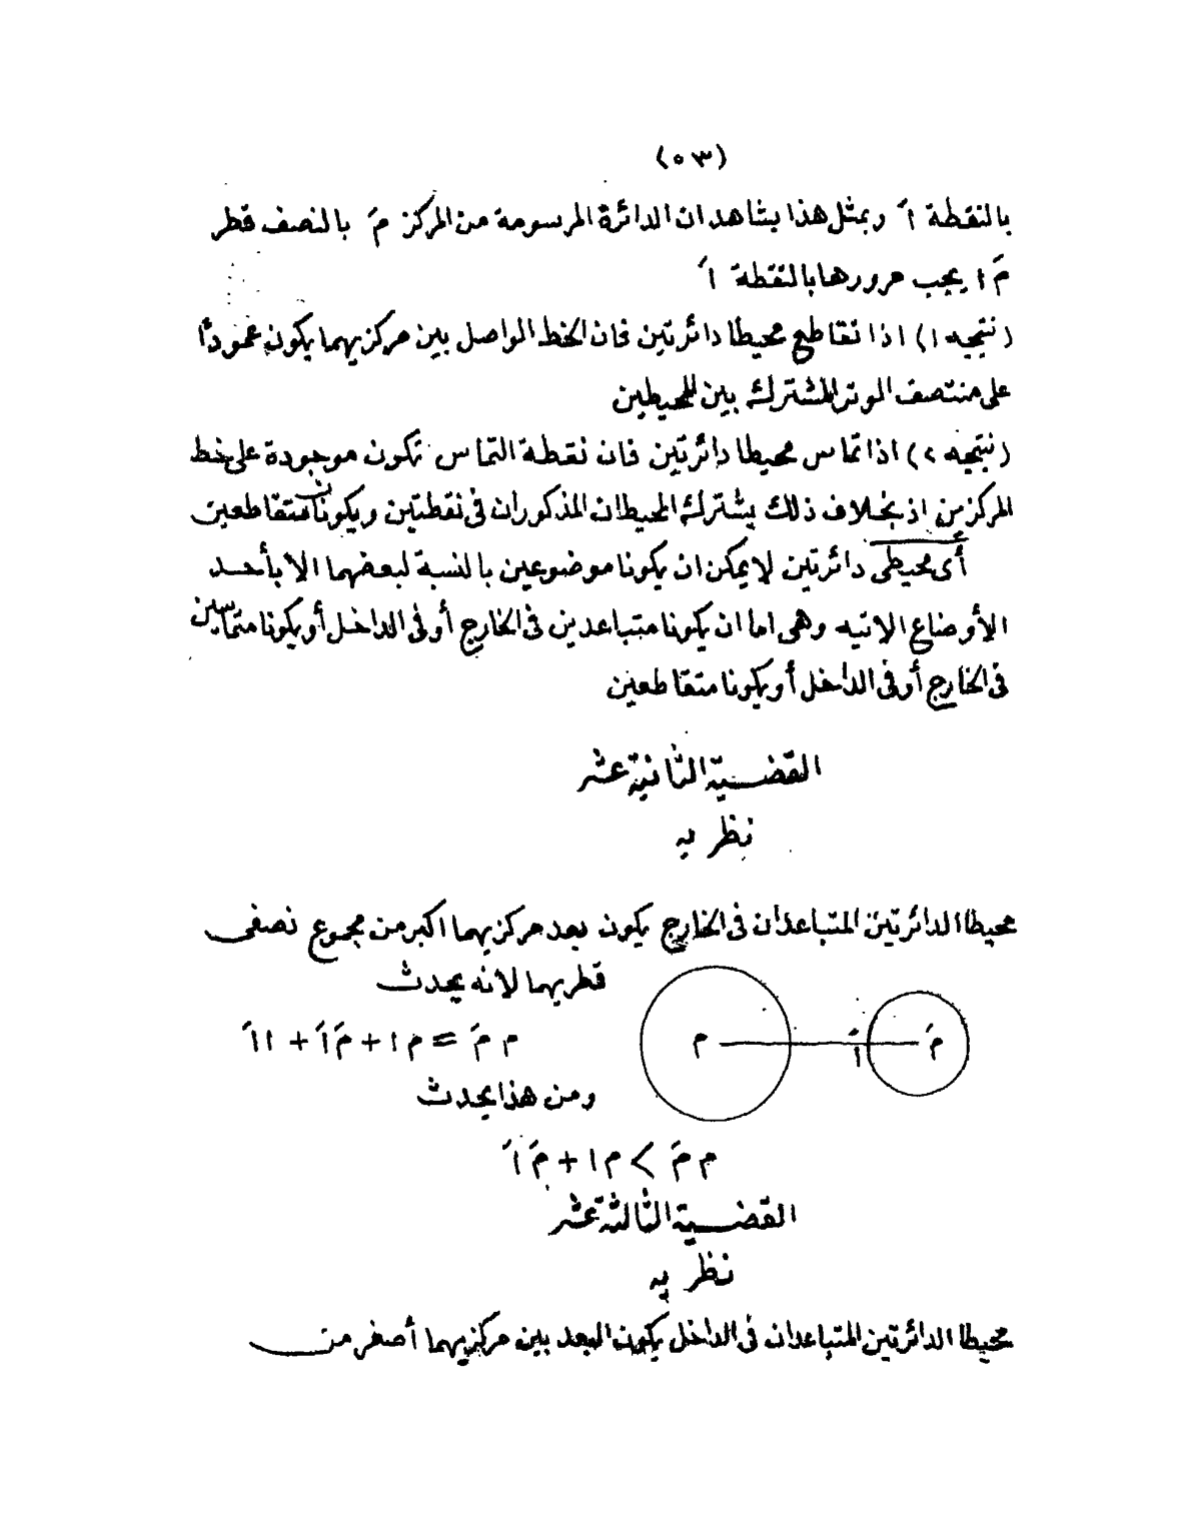 (٥٣)
بالنقطة أَ وبمثل هذا يشاهد ان الدائرة المرسومة من المركز مَ بالنصف قطر
مَ ا يجب مرورها بالنقطة اَ
(نتيجه ١) اذا تقاطع محيطا دائرتين فان الخط الواصل بين مركزيهما يكون عمودًا
على منتصف الوتر المشترك بين المحيطين
(نتيجه ٢) اذا تماس محيطا دائرتين فان نقطة التماس تكون موجودة على خط
المركزين اذ بخلاف ذلك يشترك المحيطان المذكوران فى نقطتين ويكونان متقاطعين
أى محيطى دائرتين لا يمكن ان يكونا موضوعين بالنسبة لبعضهما الا بأحد
الأوضاع الاتيه وهى اما ان يكونا متباعدين فى الخارج أو فى الداخل أو يكونا متماسين
فى الخارج أو فى الداخل أو يكونا متقاطعين
القضية الثانية عشر
نظريه
محيطا الدائرتين المتباعدان فى الخارج يكون بعد مركزيهما اكبر من مجموع نصفى
قطريهما لانه يحدث
م مَ = م ا + مَ اَ + ا اَ
ومن هذا يحدث
م اَ مَ
م مَ > م ا + مَ اَ
القضية الثالثة عشر
نظريه
محيطا الدائرتين المتباعدان فى الداخل يكون البعد بين مركزيهما أصغر من